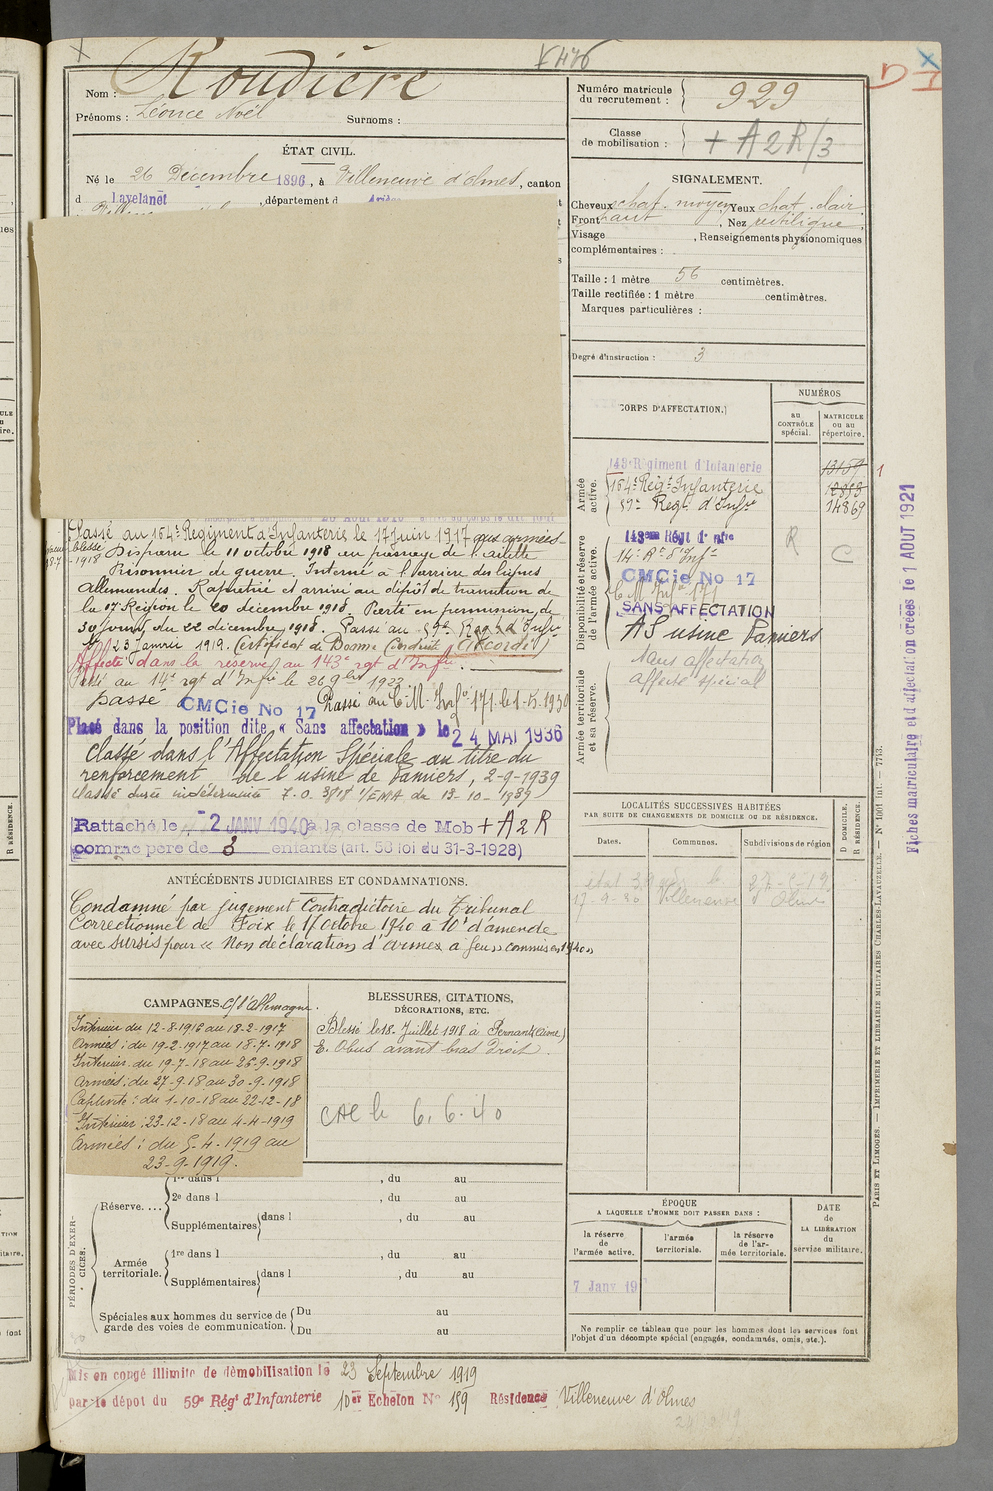 Nom : Roudière
Prénoms : Léonce Noël
Surnoms :
ÉTAT CIVIL.
Né le 26 Décembre 1896, à Villeneuve d'olmes, canton
d Lavelanet, département d Ariège
Passé au 154e Régiment d'Infanterie le 17 juin 1917 aux armées
Blessé
18-7-1918
Disparu le 11 octobre 1918 au passage de l'Ailette
Prisonnier de guerre. Interné à l'arrière des lignes
allemandes. Rapatrié et arrivé au dépôt de transition de
la 17e Région le 20 décembre 1918. Parti en permission de
30 jours du 22 décembre 1918. Passé au 59e Regt d'Infie
le 23 Janvier 1919. Certificat de Bonne Conduite Accordé
Affecté dans la réserve au 143e rgt d'Infie.
Passé au 14e rgt d'Infie le 26 9bre 1922
passé CMCie No 17 Passé au C.M. Infie 171 le 1-5-1930
Placé dans la position dite « Sans affectation » le 24 MAI 1936
Classé dans l'Affectation Spéciale au titre du
renforcement de l'usine de Pamiers, 2-9-1939
Classé durée indéterminée 7.0. 3818 1/EMA du 13-10-1939
Rattaché le -2 JANV 1940 à la classe de Mob + A 2 R
comme père de 3 enfants (art. 58 loi du 31-3-1928)
ANTÉCÉDENTS JUDICIAIRES ET CONDAMNATIONS.
Condamné par jugement Contradictoire du Tribunal
Correctionnel de Foix le 17 octobre 1940 à 10f d'amende
avec sursis pour « Non déclaration d'armes à feu » commis en 1940 »
CAMPAGNES. C/ l'Allemagne.
Intérieur du 12-8-1916 au 18-2-1917
Armées : du 19-2-1917 au 18-7-1918
Intérieur. du 19-7-18 au 26-9-1918
Armées : du 27-9-18 au 30-9-1918
Captivité : du 1-10-18 au 22-12-18
Intérieur : 23-12-18 au 4-4-1919
Armées : du 5-4-1919 au
23-9-1919.
BLESSURES, CITATIONS,
DÉCORATIONS, ETC.
Blessé le 18 Juillet 1918 à Pernant (Aisne)
E. Obus avant bras Droit.
CAE le 6.6.40
PÉRIODES D'EXERCICES.
Réserve....
1re dans l , du au
2e dans l , du au
Supplémentaires dans l , du au
Armée territoriale.
1re dans l , du au
Supplémentaires dans l , du au
Spéciales aux hommes du service de garde des voies de communication.
Du au
Du au
Mis en congé illimité de démobilisation le 23 Septembre 1919
par le dépôt du 59e Régt d'Infanterie 10er Echelon No 159 Résidence Villeneuve d'Olmes
Numéro matricule
du recrutement : 929
Classe
de mobilisation : + A 2 R/3
SIGNALEMENT.
Cheveux chat. moyen Yeux chat. clair
Front haut, Nez rectiligne.
Visage , Renseignements physionomiques
complémentaires :
Taille : 1 mètre 56 centimètres.
Taille rectifiée : 1 mètre centimètres.
Marques particulières :
Degré d'instruction : 3
CORPS D'AFFECTATION.
NUMÉROS
au
CONTRÔLE
spécial.
MATRICULE
ou au
répertoire.
Armée
active.
143e Régiment d'Infanterie 13159
154e Régt Infanterie
59e Regt d'Infie 14869
Disponibilité et réserve
de l'armée active.
143eme Régt d'Infie R
14e Rt d'Infie C
CMCie No 17
C M Infie 171
SANS AFFECTATION
AS usine Pamiers
Armée territoriale
et sa réserve.
Sans affectation
Affecté spécial
LOCALITÉS SUCCESSIVES HABITÉES
PAR SUITE DE CHANGEMENTS DE DOMICILE OU DE RÉSIDENCE.
Dates.
Communes.
Subdivisions de région
D DOMICILE.
R RÉSIDENCE.
17-9-20 Villeneuve d'Olmes
ÉPOQUE
A LAQUELLE L'HOMME DOIT PASSER DANS :
la réserve
de
l'armée active.
l'armée
territoriale.
la réserve
de l'ar-
mée territoriale.
DATE
de
LA LIBÉRATION
du
service militaire.
7 Janv 19
Ne remplir ce tableau que pour les hommes dont les services font
l'objet d'un décompte spécial (engagés, condamnés, omis, etc.).
PARIS ET LIMOGES. — IMPRIMERIE ET LIBRAIRIE MILITAIRES CHARLES-LAVAUZELLE. — No 1001 int. — 7743.
Fiches matriculaire et d'affectation créées le 1 AOUT 1921